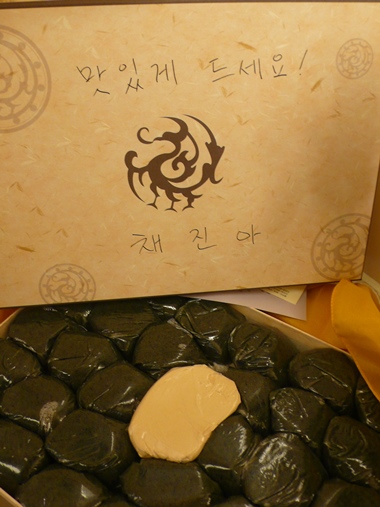 맛있게 드세요!
채진아